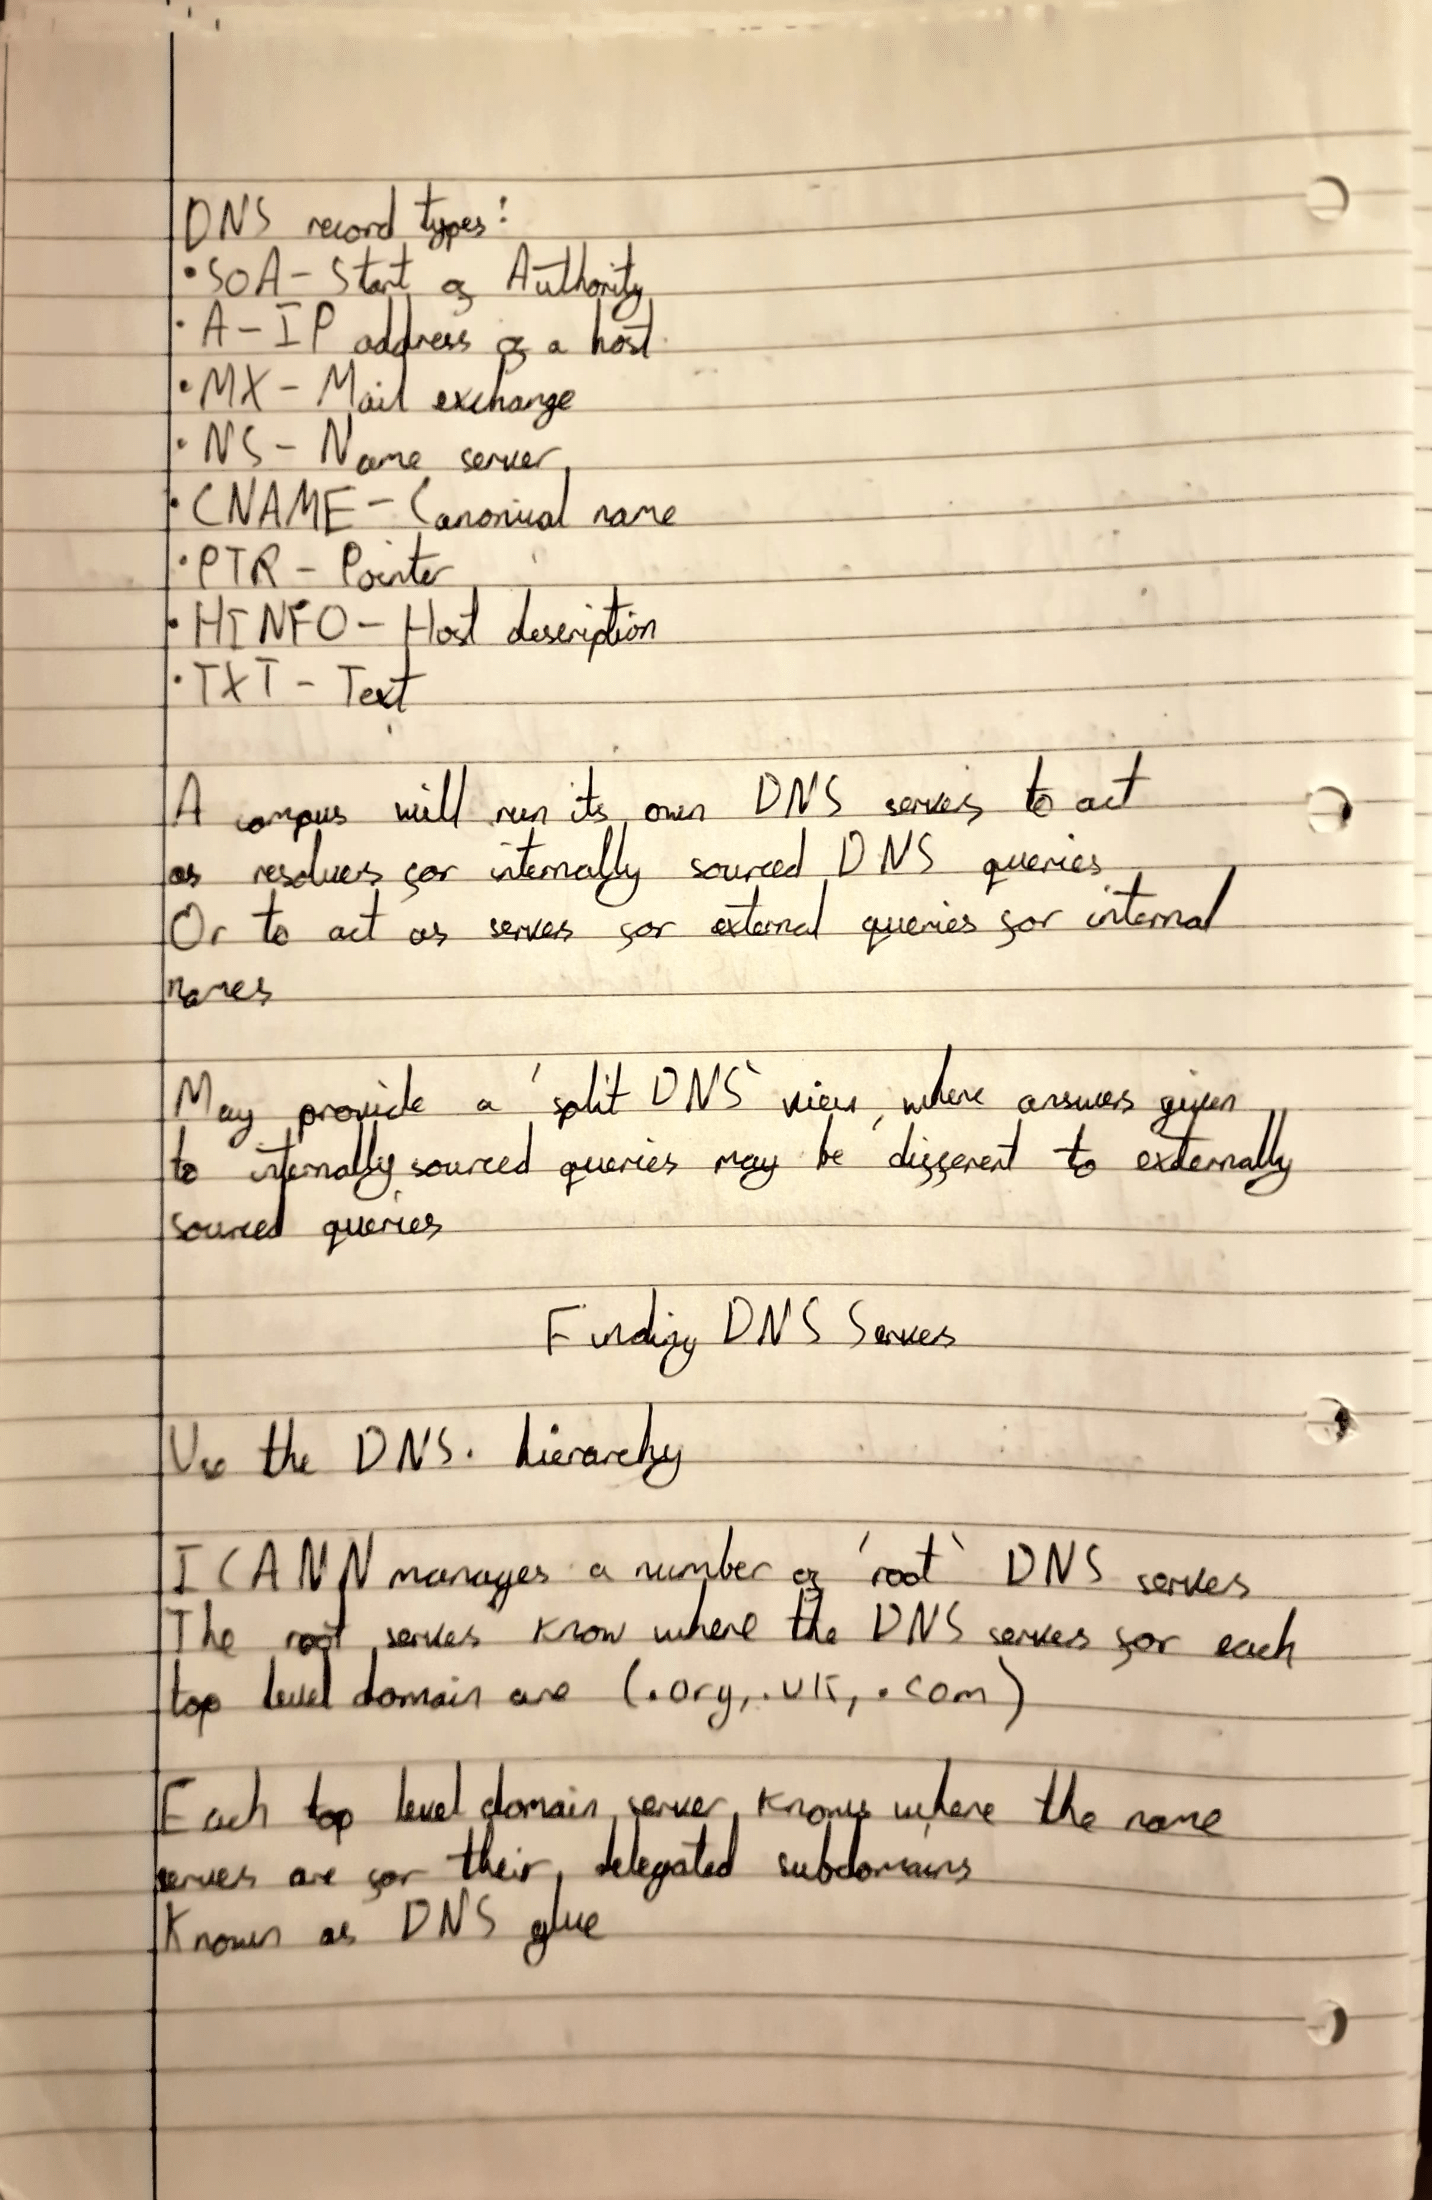 DNS record types:
• SOA - Start of Authority
• A - IP address of a host
• MX - Mail exchange
• NS - Name server
• CNAME - Canonical name
• PTR - Pointer
• HINFO - Host description
• TXT - Text
A campus will run its own DNS servers to act
as resolvers for internally sourced DNS queries
Or to act as servers for external queries for internal
names
May provide a 'split DNS' view, where answers given
to internally sourced queries may be different to externally
sourced queries
Finding DNS Servers
Use the DNS. hierarchy
ICANN manages a number of 'root' DNS servers
The root servers know where the DNS servers for each
top level domain are (.org, .uk, .com)
Each top level domain server knows where the name
servers are for their delegated subdomains
Known as DNS glue